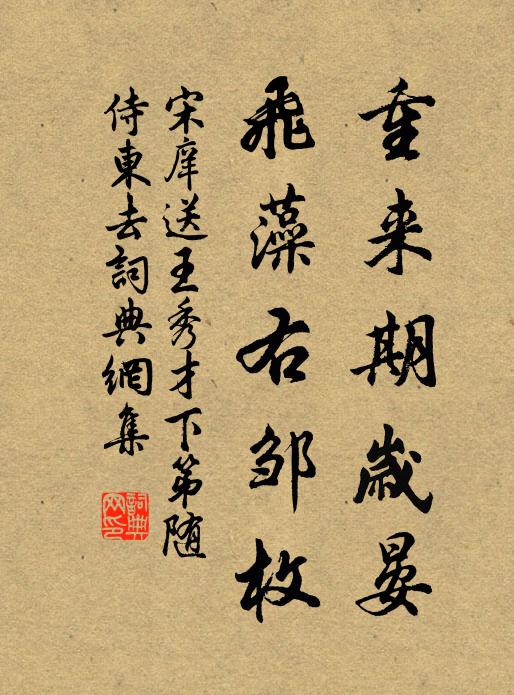 重来期歲晏
飛藻右邹枚
宋庠送王秀才下第随
侍東去詞典網集
詞典网印